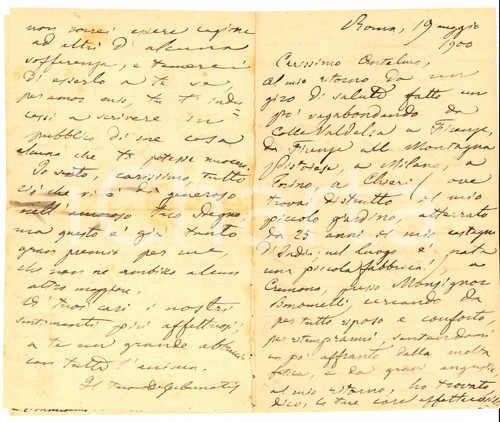 Roma, 19 maggio
1900
Carissimo
al mio ritorno da un
giro di salute fatto un
po' vagabondando da
Colle Valdelsa a Firenze,
da Firenze alla Montagna
Pistoiese, a Milano, a
Torino, a Chieri, ove
trovai distrutto il mio
piccolo giardino, atterrato
da 25 anni il mio castagno
d'India; nel luogo è nata
una piccola fabbrica!, a
Cremona, presso Monsignor
Bonomelli, cercando da
per tutto riposo e conforto,
per ritemprarmi, sentendomi
un po' affranto dalla molta
fatica, e da gravi angustie
al mio ritorno, ho trovato
dico, le tue care
non vorrei essere cagione
ad altri d'alcuna
sofferenza, e temerei
di esserlo a te se,
per amor mio, tu t'indu=
cessi a scrivere in
pubblico di me cosa
alcuna che ti potesse nuocere.
Io sento, carissimo, tutto
ciò che vi è di generoso
nell'amoroso tuo
ma questo è già tanto
gran premio per me,
che non ne ambirei alcun
altro maggiore.
A' tuoi cari i nostri
sentimenti più affettuosi;
a te un grande abbraccio
con tutta l'anima.
Il tuo DeGubernatis